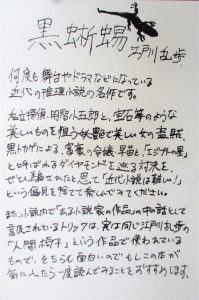 黒蜥蜴
江戸川乱歩
何度も舞台やドラマなどになっている
近代の推理小説の名作です。
私立探偵・明智小五郎と、宝石等のような
美しいものを狙う妖艶で美しい女の盗賊、
黒トカゲによる、富豪の令嬢・早苗と「エジプトの星」
と呼ばれるダイヤモンドを巡る対決を
ぜひ見届けて
「近代小説は難しい」
という偏見を捨てて楽しんでみてください。
また、小説内で「ある小説家の作品」の中の話として
言及されているトリックは、実は同じ江戸川乱歩の
「人間椅子」という作品で使われている
もので、そちらも面白いのでもしこの本が
気に入ったら一度読んでみることをおすすめします。